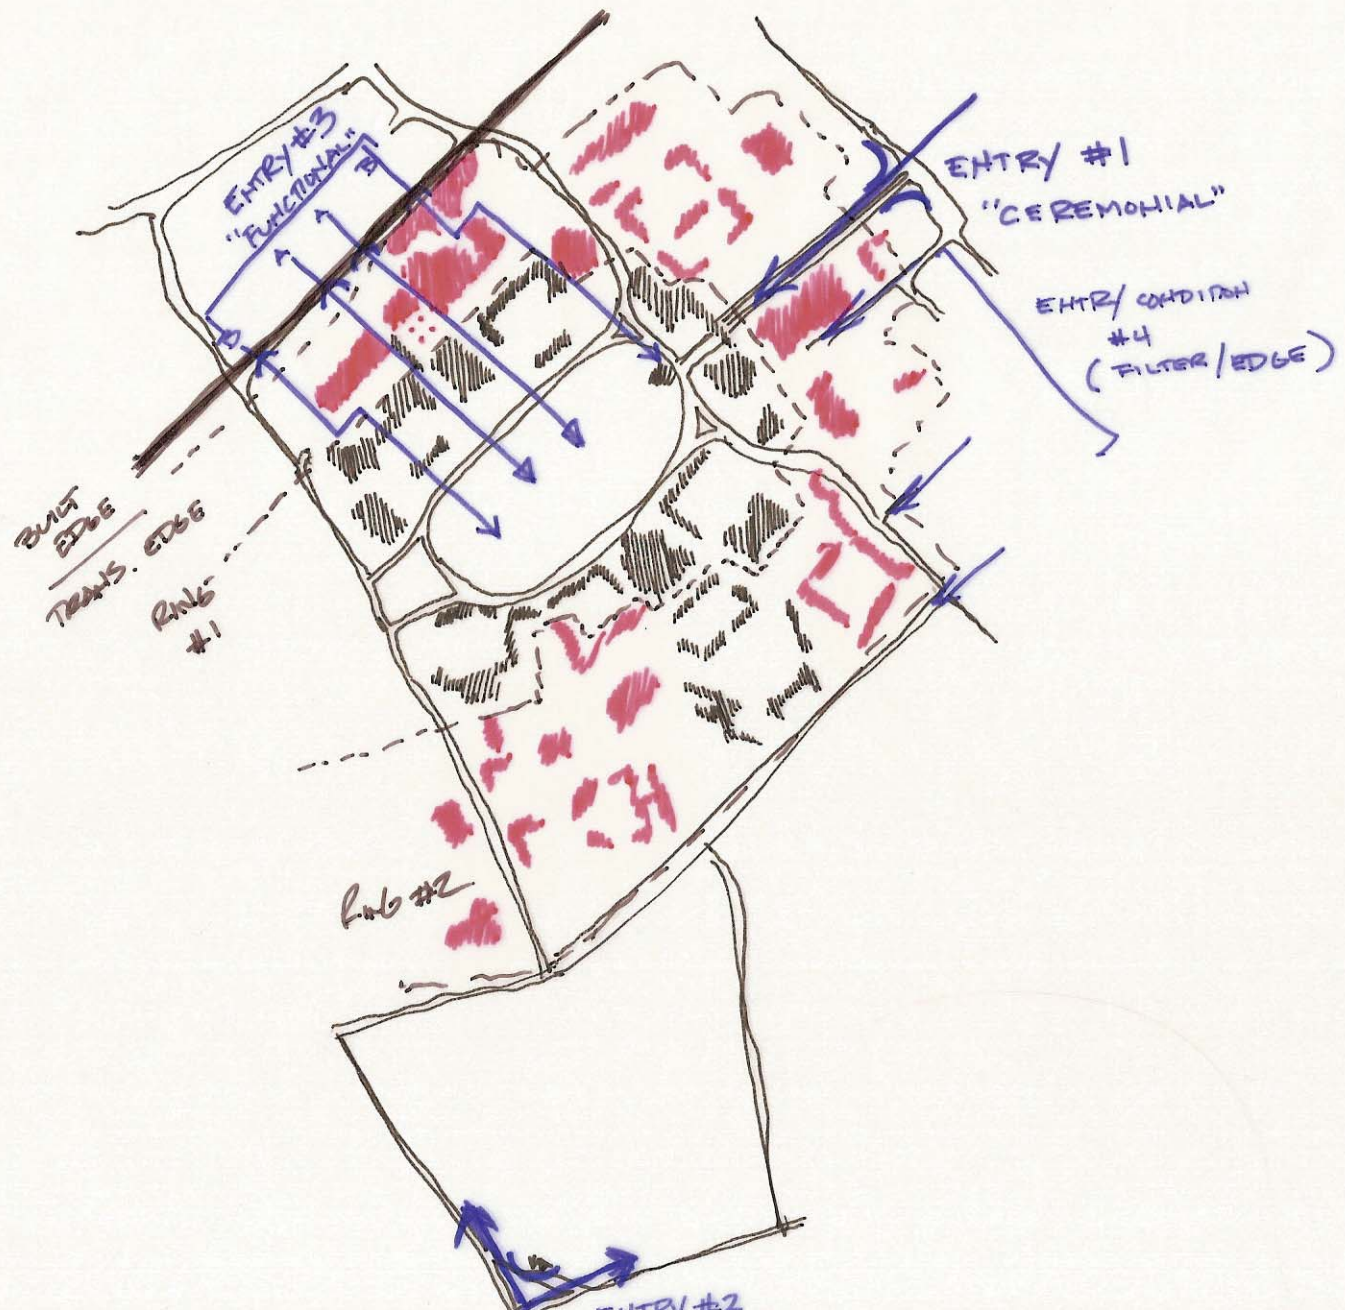 ENTRY #3
"FUNCTIONAL"
B
A
A
B
ENTRY #1
"CEREMONIAL"
ENTRY CONDITION
#4
(FILTER/EDGE)
BUILT
EDGE
TRANS. EDGE
RING
#1
RING #2
ENTRY #2